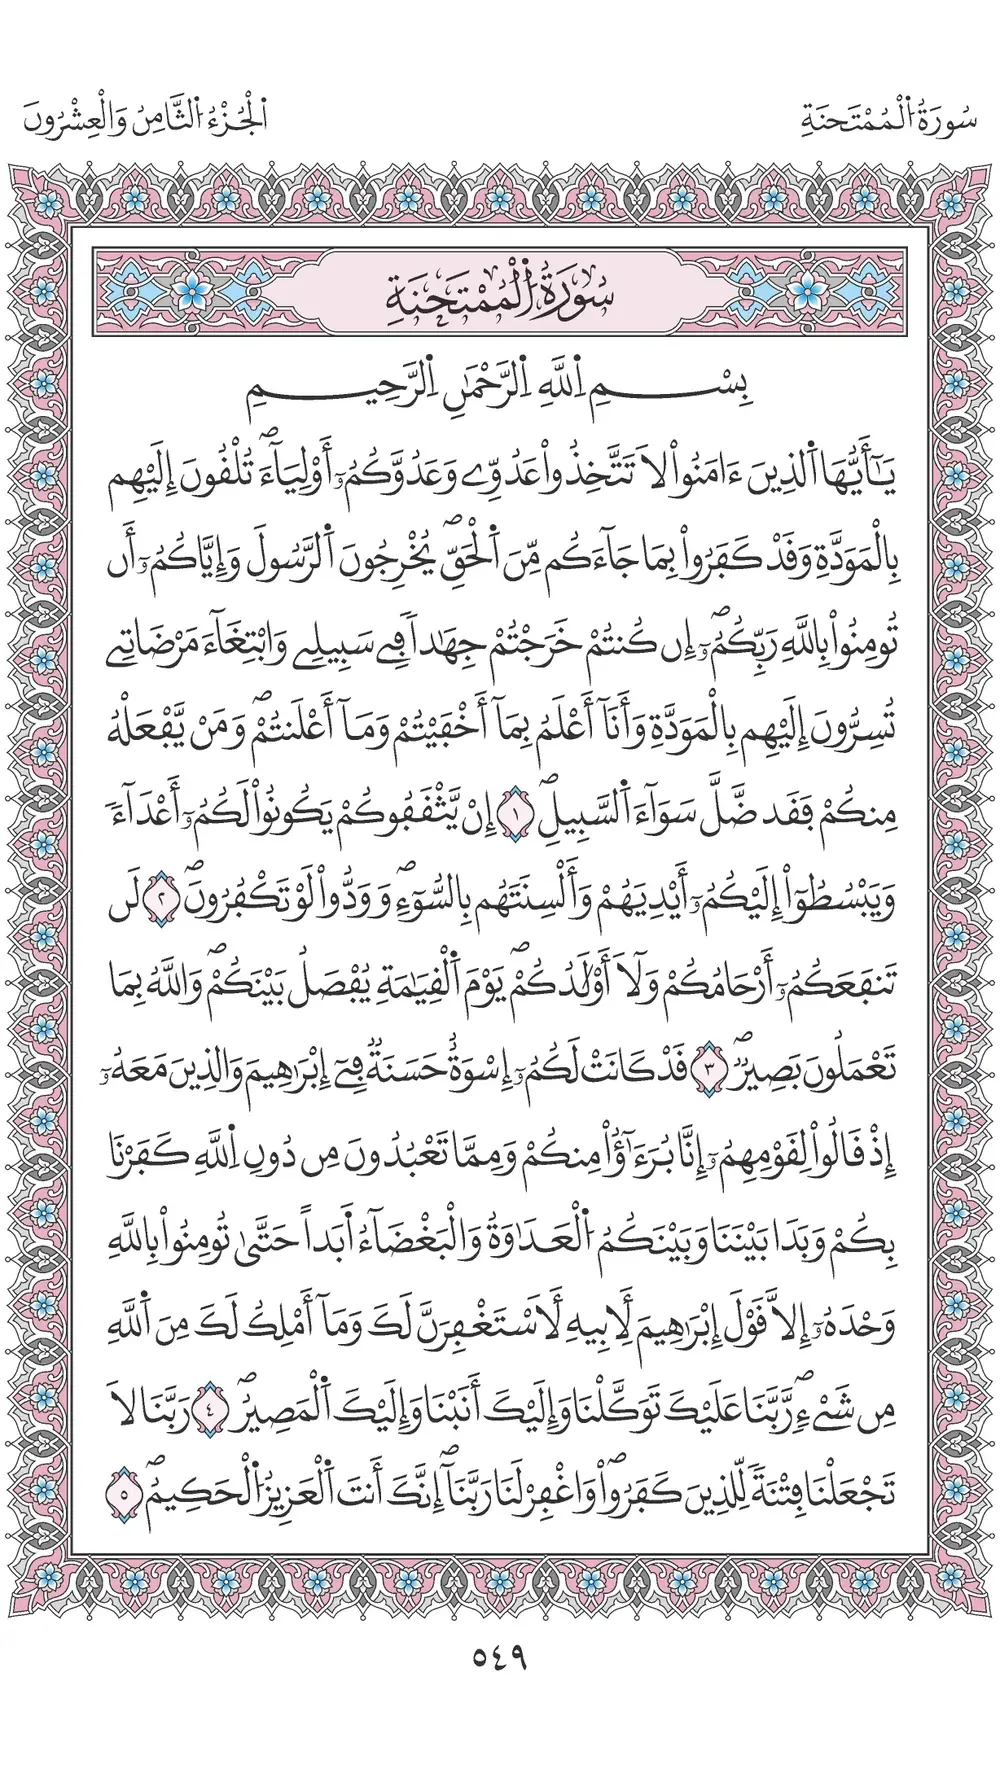 سُورَةُ الْمُمْتَحِنَةِ
الْجُزْءُ الثَّامِنُ وَالْعِشْرُونَ
سُورَةُ الْمُمْتَحِنَةِ
بِسْمِ اِ۬للَّهِ اِ۬لرَّحْمَٰنِ اِ۬لرَّحِيمِ
يَٰٓأَيُّهَا اَ۬لذِينَ ءَامَنُواْ لَا تَتَّخِذُواْ عَدُوِّے وَعَدُوَّكُمُۥٓ أَوْلِيَآءَۖ تُلْقُونَ إِلَيْهِم
بِالْمَوَدَّةِ وَقَدْ كَفَرُواْ بِمَا جَآءَكُم مِّنَ اَ۬لْحَقِّۖ يُخْرِجُونَ اَ۬لرَّسُولَ وَإِيَّاكُمُۥٓ أَن
تُومِنُواْ بِاللَّهِ رَبِّكُمُۥٓۖ إِن كُنتُمْ خَرَجْتُمْ جِهَٰداٗ فِے سَبِيلِے وَابْتِغَآءَ مَرْضَاتِے
تُسِرُّونَ إِلَيْهِم بِالْمَوَدَّةِ وَأَنَآ أَعْلَمُ بِمَآ أَخْفَيْتُمْ وَمَآ أَعْلَنتُمْۖ وَمَنْ يَّفْعَلْهُ
مِنكُمْ فَقَد ضَّلَّ سَوَآءَ اَ۬لسَّبِيلِۖ ١ إِنْ يَّثْقَفُوكُمْ يَكُونُواْ لَكُمُۥٓ أَعْدَآءٗ
وَيَبْسُطُوٓاْ إِلَيْكُمُۥٓ أَيْدِيَهُمْ وَأَلْسِنَتَهُم بِالسُّوٓءِۖ وَوَدُّواْ لَوْ تَكْفُرُونَۖ ٢ لَن
تَنفَعَكُمُۥٓ أَرْحَامُكُمْ وَلَآ أَوْلَٰدُكُمْۖ يَوْمَ اَ۬لْقِيَٰمَةِ يُفْصَلُ بَيْنَكُمْۖ وَاللَّهُ بِمَا
تَعْمَلُونَ بَصِيرٞۖ ٣ قَدْ كَانَتْ لَكُمُۥٓ إِسْوَةٌ حَسَنَةٞ فِےٓ إِبْرَٰهِيمَ وَالذِينَ مَعَهُۥٓ
إِذْ قَالُواْ لِقَوْمِهِمُۥٓ إِنَّا بُرَءَٰٓؤُاْ مِنكُمْ وَمِمَّا تَعْبُدُونَ مِن دُونِ اِ۬للَّهِ كَفَرْنَا
بِكُمْ وَبَدَا بَيْنَنَا وَبَيْنَكُمُ اُ۬لْعَدَٰوَةُ وَالْبَغْضَآءُ ا۟بَداً حَتَّيٰ تُومِنُواْ بِاللَّهِ
وَحْدَهُۥٓ إِلَّا قَوْلَ إِبْرَٰهِيمَ لِأَبِيهِ لَأَسْتَغْفِرَنَّ لَكَ وَمَآ أَمْلِكُ لَكَ مِنَ اَ۬للَّهِ
مِن شَےْءٖۖ رَّبَّنَا عَلَيْكَ تَوَكَّلْنَا وَإِلَيْكَ أَنَبْنَا وَإِلَيْكَ اَ۬لْمَصِيرُۖ ٤ رَبَّنَا لَا
تَجْعَلْنَا فِتْنَةٗ لِّلذِينَ كَفَرُواْۖ وَاغْفِرْ لَنَا رَبَّنَآۖ إِنَّكَ أَنتَ اَ۬لْعَزِيزُ اُ۬لْحَكِيمُۖ ٥
٥٤٩